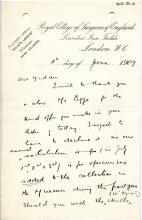 Royal College of Surgeons of England
Lincoln's Inn Fields
London. W.C.
8th day of June 1909
Dear Madam
I write to thank you
& also Mr Biggs for the
kind offer you make in your
letter of today. I regret to
have to declined as our
exhibition is for in July
1st 2nd & 3rd is for specimens
added to the collection in
the Museum during the past year
Should you wish the